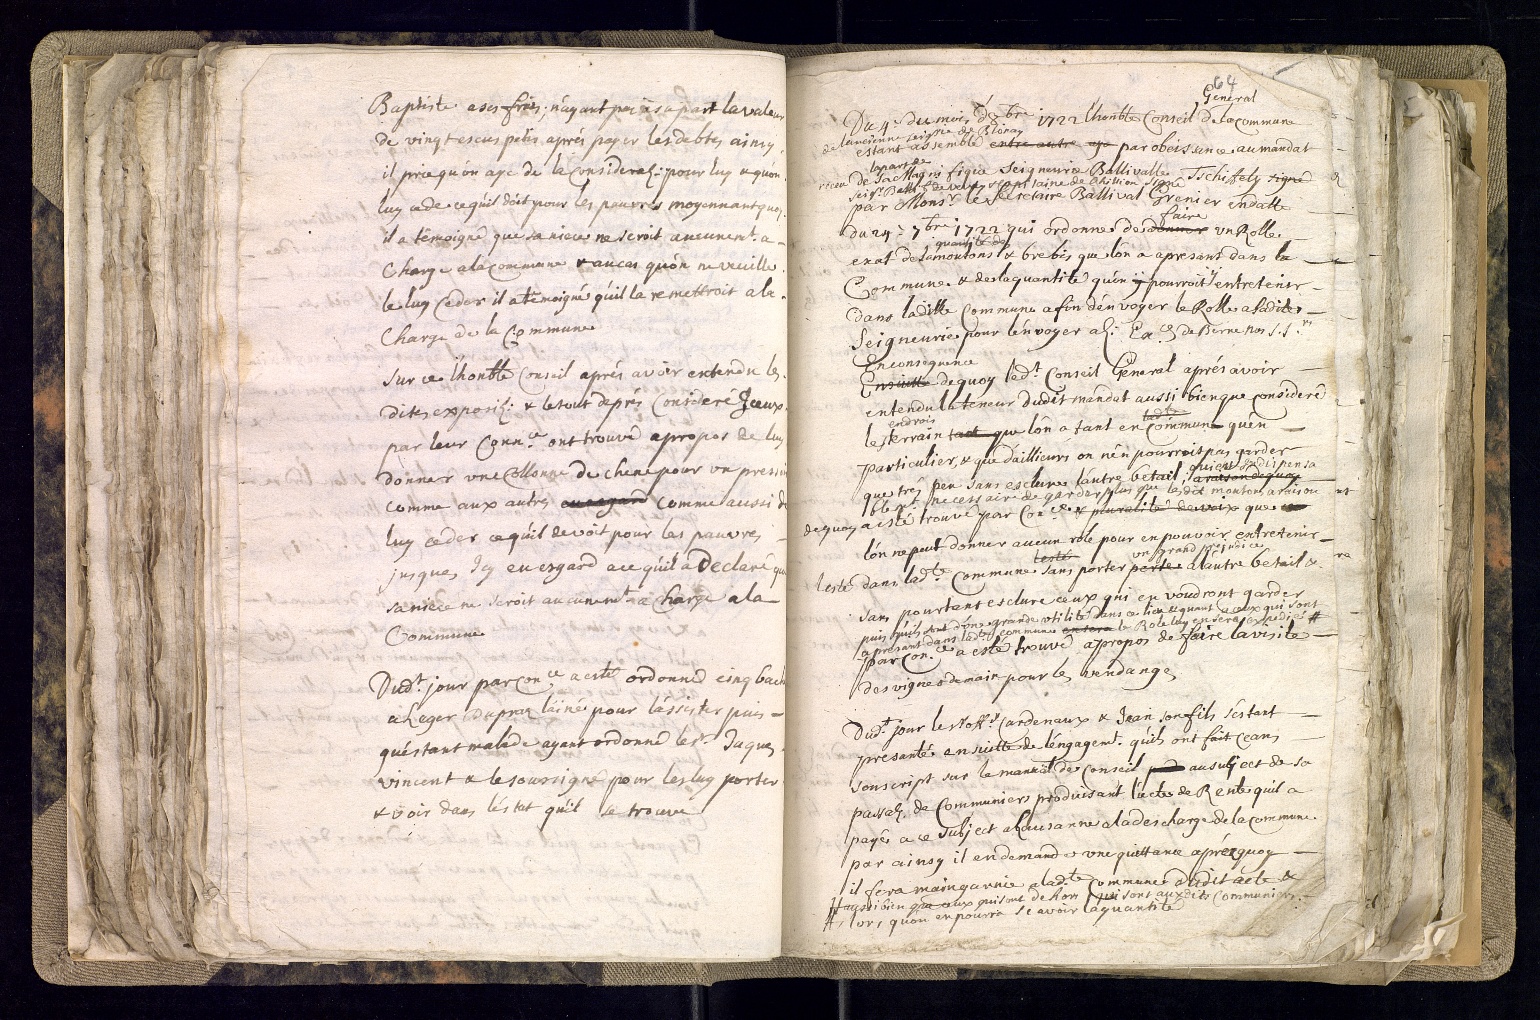 Baptiste a ses freres, n'ayant pas a sa part la valeur
de vingt escus petis aprés payer les debtes ainsy
il prie qu'on aye de la Considera͠: pour luy & qu'on
luy cede ce qu'il doit pour les pauvres moyennant quoy
il a temoigné que sa niece ne seroit aucunemt. a
Charge a la Commune & au cas qu'on ne veuille
le luy Ceder il a temoigné qu'il la remettroit a la
Charge de la Commune
Sur ce l'honble Conseil aprés avoir entendu les
dites exposi͠: & le tout deprés Consideré Iceux
par leur Connce ont trouvé apropos de luy
donner une Collonne de chene pour un pressoir
comme aux autres comme aussi de
luy ceder ce qu'il devoit pour les pauvres
jusques Icy en esgard a ce qu'il a Declaré que
sa niece ne seroit aucunemt. a Charge a la
Commune
Dudt. jour par Conce a esté ordonné cinq bach
a Leger Dupraz l'ainé pour l'assister puis
qu'estant malade ayant ordonné le sr. Jaques
vincent & le soussigné pour les luy porter
& voir dans l'estat qu'il se trouve
64
General
Du 4e. du mois d'8bre 1722 l'honble Conseil de la Commune
de la
estant assemblé entre autre par obeissance au mandat
la part de
receu de Sa Magnifique Seigneurie Ballivalle Tschiffely signé
Seigr. Ballif de Vevey & Capitaine de Chillion signé
par Monsr. le Secretaire Ballival Grenier en datte
faire
du 24e. 7bre 1722 qui ordonne de donner un Rolle
quantité de
exat de la moutons & brebis que l'on a apresant dans la
Commune & de la quantité qu'on y pourroit entretenir
dans laditte Commune afin d'envoyer le Rolle a Saditte
Seigneurie pour l'envoyer a L: Exces de Berne nos S.S.rs
En consequence
Ensuitte de quoy ledt. Conseil General aprés avoir
entendu la teneur dudit mandat aussi bien que consideré
endrois ladte
le terrain tant que l'on a tant en Commun qu'en
particulier, & que d'ailleurs on n'en pourroit pas garder
que trés peu sans esclure l'autre betail, a raison de quoy
necessaire de garder plus que les dit moutons a raison
de quoy a esté trouvé par Conce & pluralité de voix que
l'on ne peut donner aucun role pour en pouvoir entretenir
l'esté un grand préjudice
l'esté dans ladte Commune sans porter perte a l'autre betail &
sans pourtant esclure ceux qui en voudront garder
puis qu'ils sont d'une grande utilité dans ce lieu & quant a ceux qui sont
apresant dans ladte commune le Role luy en sera expedié #
par Conce a esté trouvé apropos de faire la visite
des vignes demain pour les vendanges
Dudt. jour les Cardenaux & Jean son fils s'estant
presanté en suitte de l'engagemt. qu'ils ont fait ceans
souscript sur le manual de Conseil au subject de sa
passa͠: de Communiers produisant l'acte de Rente qu'il a
payé a ce subject a Lausanne a la descharge de la Commune
par ainsy il en demande une quittance aprés quoy
il fera maingarnie a ladte Commune dudit acte &
# aussi bien que ceux qui sont dehors qui sont auxdits Communiers
# lors qu'on en pourra scavoir la quantité